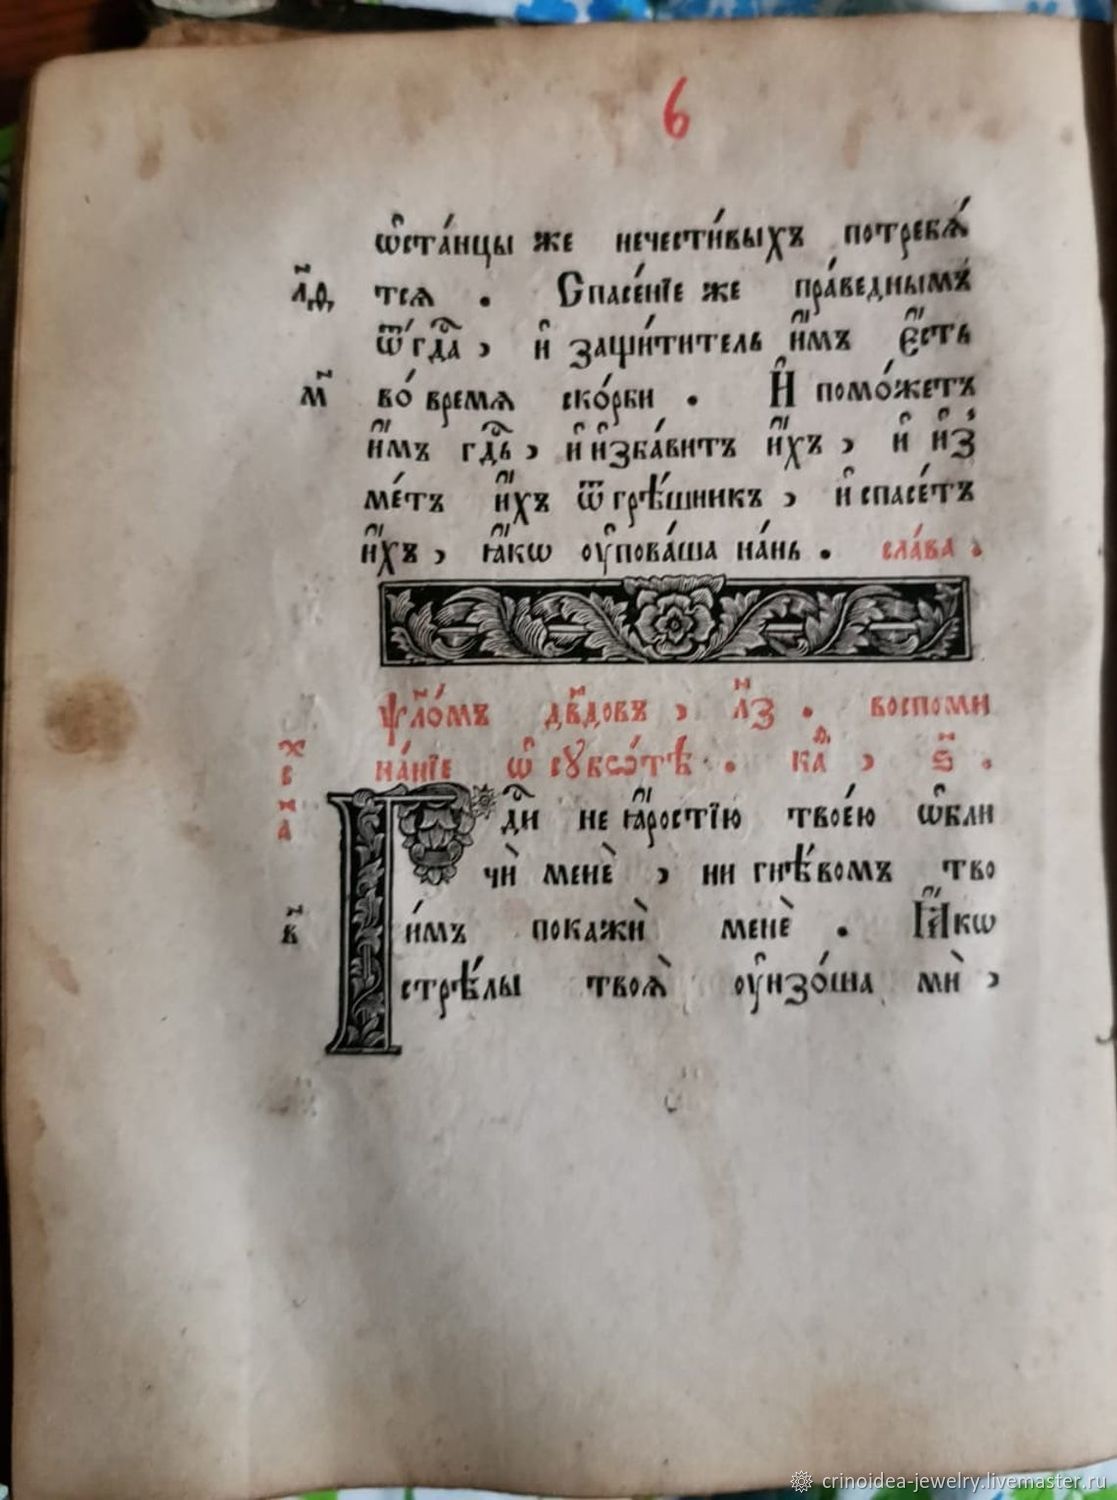 6
ѡ҆ста́нцы же нечести́выхъ потребѧ́
л҃ѳ тсѧ . Спасе́нїе же пра́веднымъ
ѿ гд҇а , и҆ защи́титель и҆́мъ є҆́сть
м҃ во́ времѧ ско́рби . И҆ помо́жетъ
и҆́мъ гд҇ь , и҆ и҆зба́витъ и҆́хъ , и҆ и҆з̾
ме́тъ и҆́хъ ѿ грѣ́шникъ , и҆ спасе́тъ
и҆́хъ , ꙗ҆́кѡ ᲂу҆пова́ша на́нь . сла́ва .
ѱало́мъ дв҃довъ , л҃з . воспоми
на́нїе ѡ҆ сꙋббѡ́тѣ . каⷴ , ѕ҃ .
Гⷭ҇ди не ꙗ҆́ростїю твое́ю ѡ҆бли
а҃
чѝ менѐ , ни гнѣ́вомъ тво
в҃ и́мъ покажѝ менѐ . Ꙗ҆́кѡ
стрѣ́лы твоѧ̀ ᲂу҆нзо́ша мѝ ,
crinoidea-jewelry.livemaster.ru